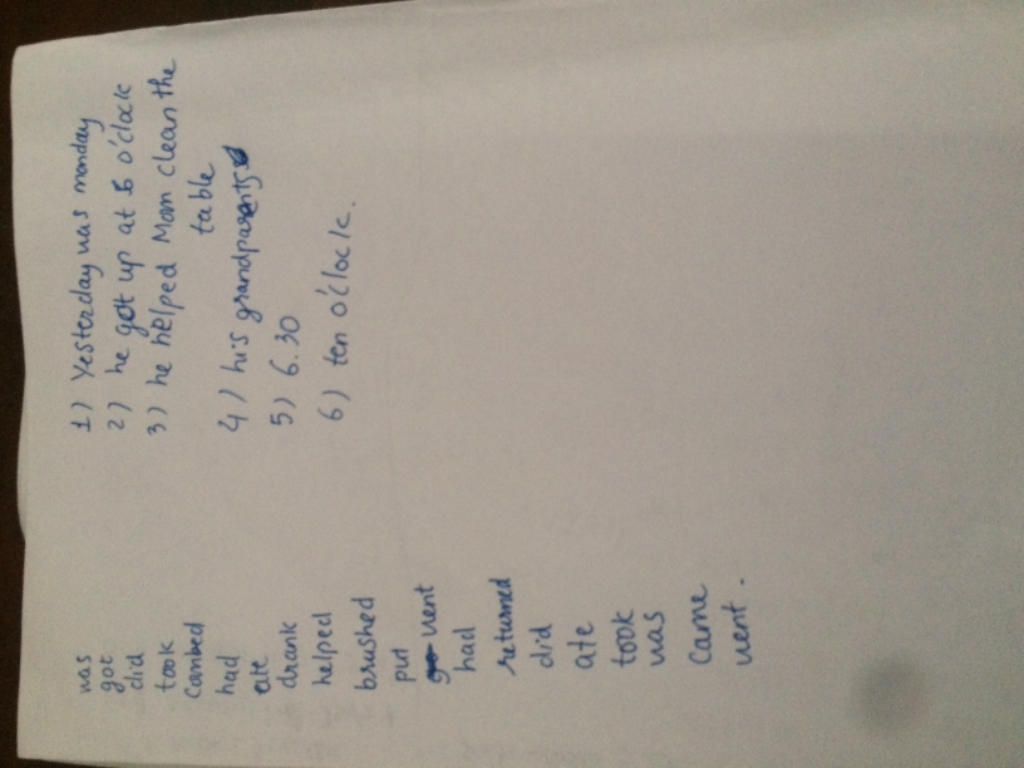 was
got
did
took
Combed
had
ate
drank
helped
brushed
put
went
had
returned
did
ate
took
was
Came
went.
1) Yesterday was monday
2) he got up at o'clock
3) he helped Mom clean the
table
4) his grandparents
5) 6.30
6) ten o'clock.